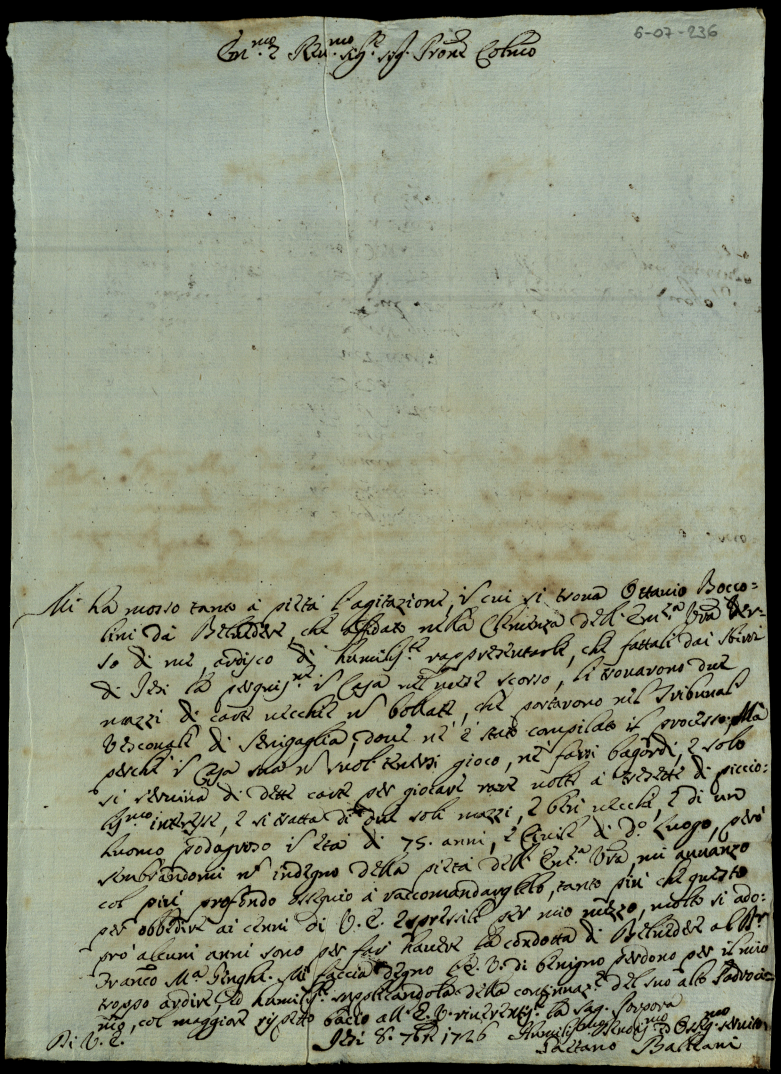 6-07-236
Em.mo e Rev.mo Sig.r Sig. Prone Colmo
Mi ha mosso tanto à pietà l'agitazione, in cui si trova Ottavio Bocco=
lini da Belvedere, che affidato nella Clemenza dell'Em.za Vra ver=
so di me, ardisco di humiliss.te rappresentarle, che fattali dai sbirri
di Jesi la perquis.ne in Casa nel mese scorso, li trovarono due
mazzi di carte vecchie nò bollate, che portarono nel Tribunal
Vescovale di Senigaglia, dove nè è stato compilato il processo. Mà
perche in Casa sua nò vuol tenersi gioco, ne farsi bagordi, e solo
si serviva di dette carte per giocare rare volte à tresette di piccio=
liss.mo interesse, e si tratta di due soli mazzi, e ben vecchi, e di un
huomo podagroso in età di 75. anni, e Civile di d.o Luogo, però
sembrandomi nò indegno della pietà dell'Em.za Vra, mi avvanzo
col più profondo ossequio à raccomandarglielo, tanto più che questo
per obbedire ai cenni di V. E. espressili per mio mezzo, molto si ado=
prò alcuni anni sono per far havere la condotta di Belvedere al
Franco M.a Mi faccia degno l'E. V. di benigno perdono per il mio
troppo ardire, ed humiliss.te supplicandola della continuaz.e del suo alto Padroci=
nio, col maggiore rispetto bacio all'E. V. riverentem.te la Sag. Porpora
Di V. E. Jesi 8. 7bre 1726 Humiliss.mo Devotiss.mo et Osseq. servitor
Gaetano